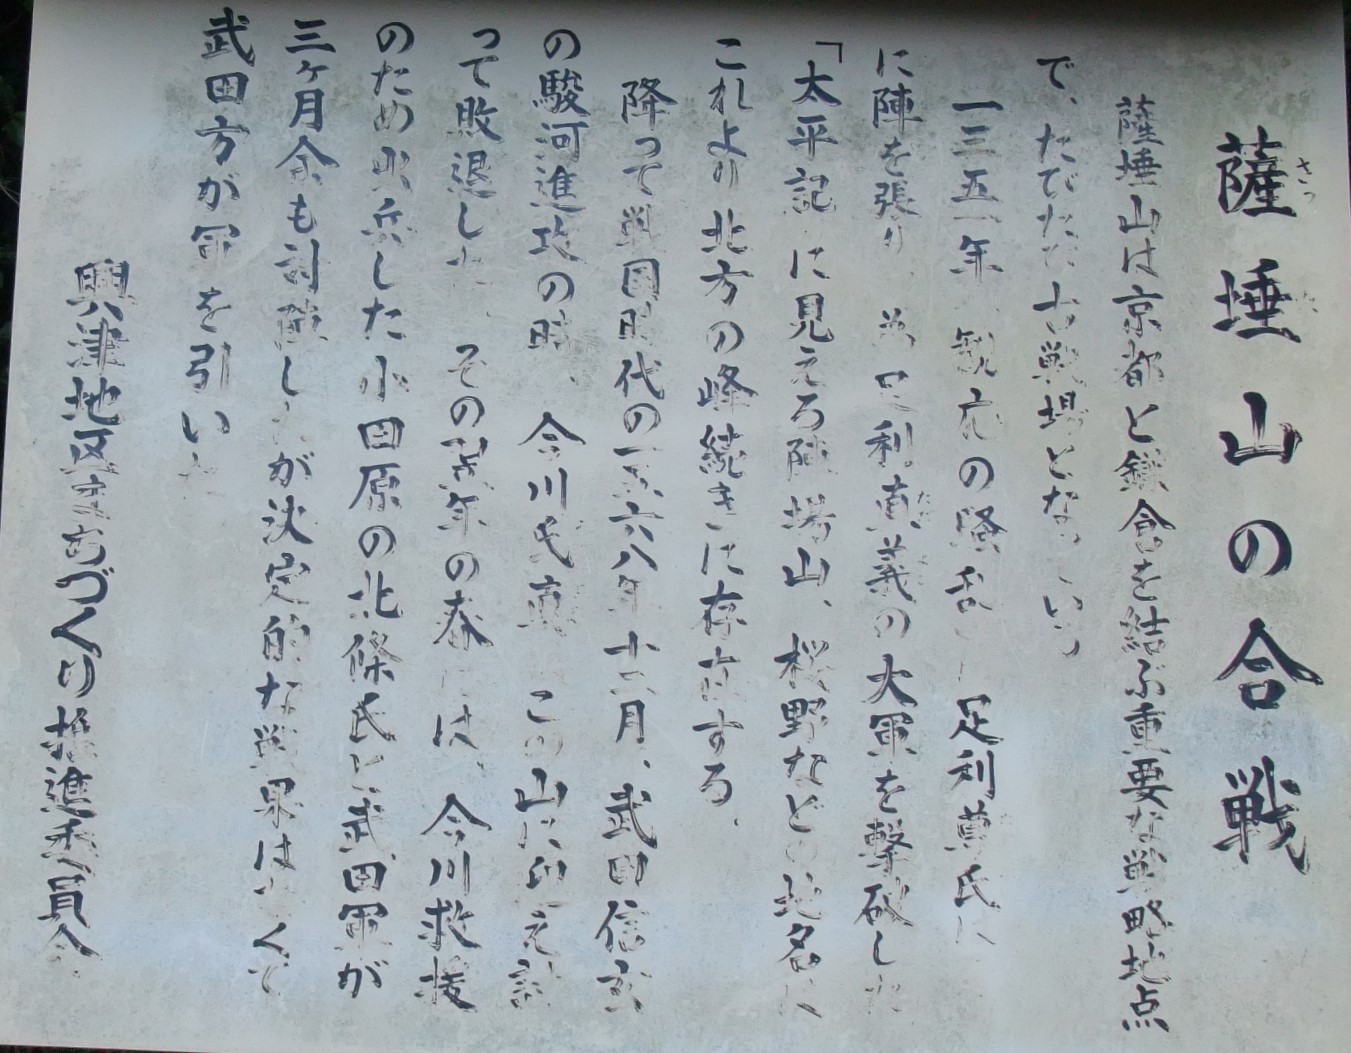 薩埵山の合戦
さっ
薩埵山は京都と鎌倉を結ぶ重要な戦略地点
で、たびたび古戦場となっている
一三五一年、観応の騒乱で足利尊氏は
に陣を張り、弟足利直義の大軍を撃破した
「太平記」に見える陣場山、桜野などの地名は
これより北方の峰続きに存在する。
降って戦国時代の一五六八年十二月、武田信玄
の駿河進攻の時、今川氏真はこの山に迎え討
って敗退した。その翌年の春には、今川救援
のため出兵した小田原の北條氏と武田軍が
三ヶ月余も対陣したが決定的な戦果はなくて
武田方が軍を引いた
興津地区まちづくり推進委員会